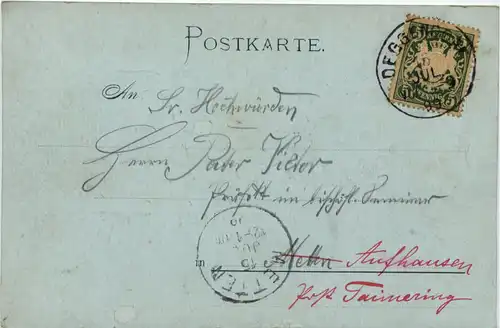 POSTKARTE.
DEGGEND
JUL
An Sr. Hochwürden
Herrn Pater Victor
Präfekt im bischöfl. Seminar
METTEN
JUL
Metten Aufhausen
Post Taimering